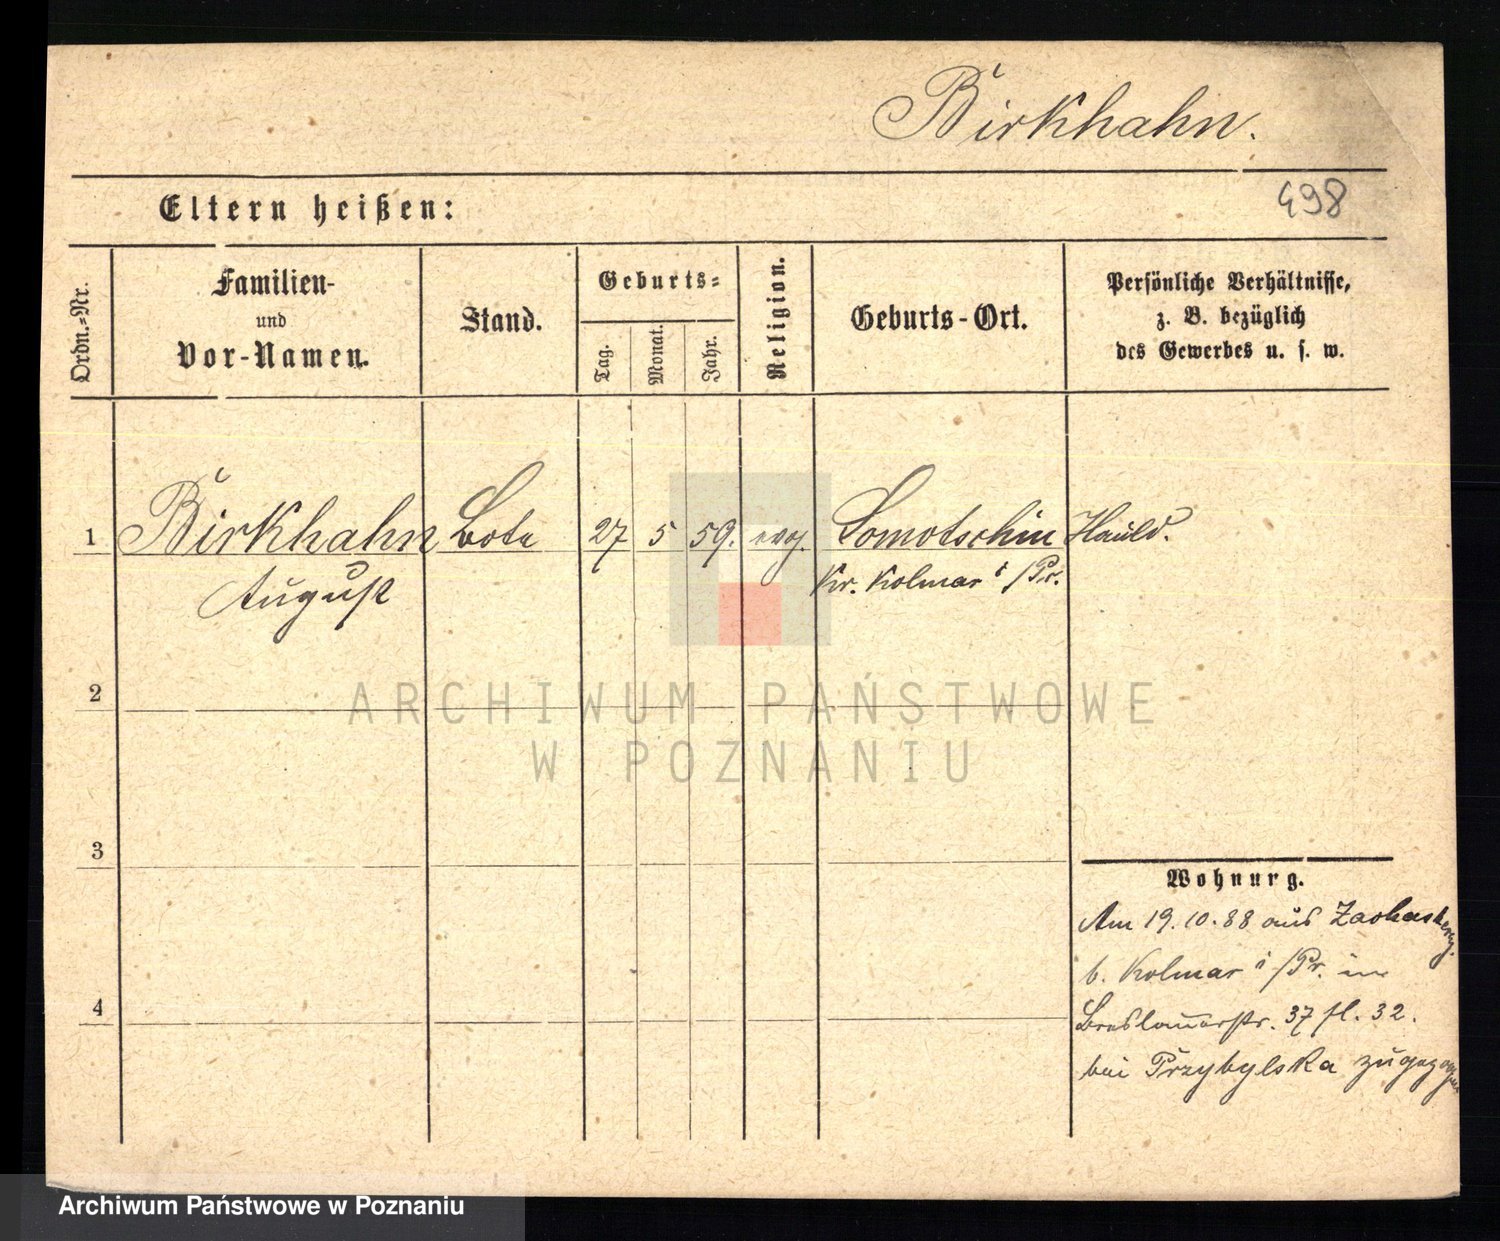 Birkhahn.
498
Eltern heißen:
Ordn.-Nr.
Familien-
und
Vor-Namen.
Stand.
Geburts-
Tag.
Monat.
Jahr.
Religion.
Geburts-Ort.
Persönliche Verhältnisse,
z. B. bezüglich
des Gewerbes u. s. w.
1 Birkhahn Bote 27 5 59. evg. Somotschin
August Kr. Kolmar i/Pr.
2
3
4
Wohnurg.
Am 19.10.88 aus
b. Kolmar i/Pr. in
Breslauerstr. 37 fl. 32.
bei Przybylska zugezogen
ARCHIWUM PAŃSTWOWE
W POZNANIU
Archiwum Państwowe w Poznaniu